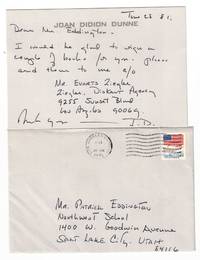 JOAN DIDION DUNNE
Jan 23 81.
Dear Mr. Eddington.
I would be glad to sign a
couple of books for you. Please
send them to me c/o
Mr. Evarts Ziegler
Ziegler, Diskant Agency
9255 Sunset Blvd
Los Angeles 90069
Thank you
J.D.
Mr Patrick Eddington
Northwest School
1400 W. Goodwin Avenue
Salt Lake City, Utah
84116